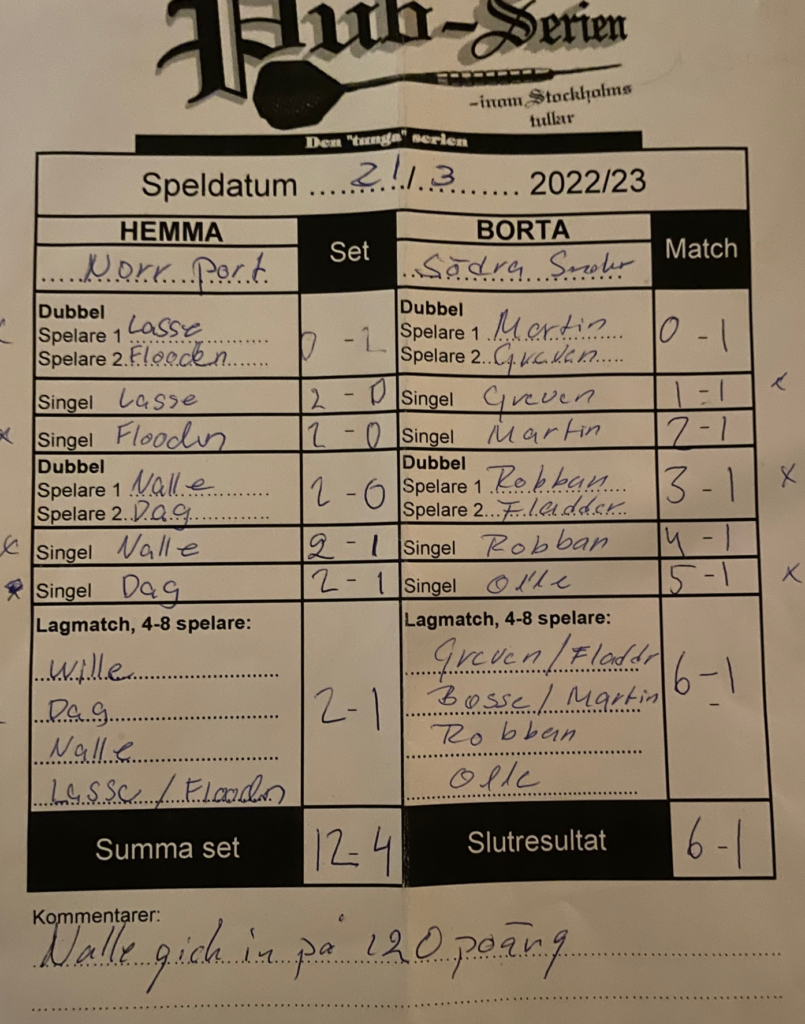 Pub-Serien
-inom Stockholms
tullar
Den "tunga" serien
Speldatum ....21/3.... 2022/23
HEMMA Set BORTA Match
Norr port Södra
Dubbel Dubbel
Spelare 1 Lasse 0-2 Spelare 1 Martin 0-1
Spelare 2 Flooden Spelare 2 Greven
Singel Lasse 2-0 Singel Greven 1-1 x
x Singel Floodn 2-0 Singel Martin 2-1
Dubbel Dubbel
Spelare 1 Nalle 2-0 Spelare 1 Robban 3-1 x
Spelare 2 Dag Spelare 2 Fladder
x Singel Nalle 2-1 Singel Robban 4-1
Singel Dag 2-1 Singel Olle 5-1 x
Lagmatch, 4-8 spelare: Lagmatch, 4-8 spelare:
Wille Greven/Fladdr
Dag 2-1 Bosse/Martin 6-1
Nalle Robban
Lasse/Floodn Olle
Summa set 12-4 Slutresultat 6-1
Kommentarer:
Nalle gick in på 120 poäng